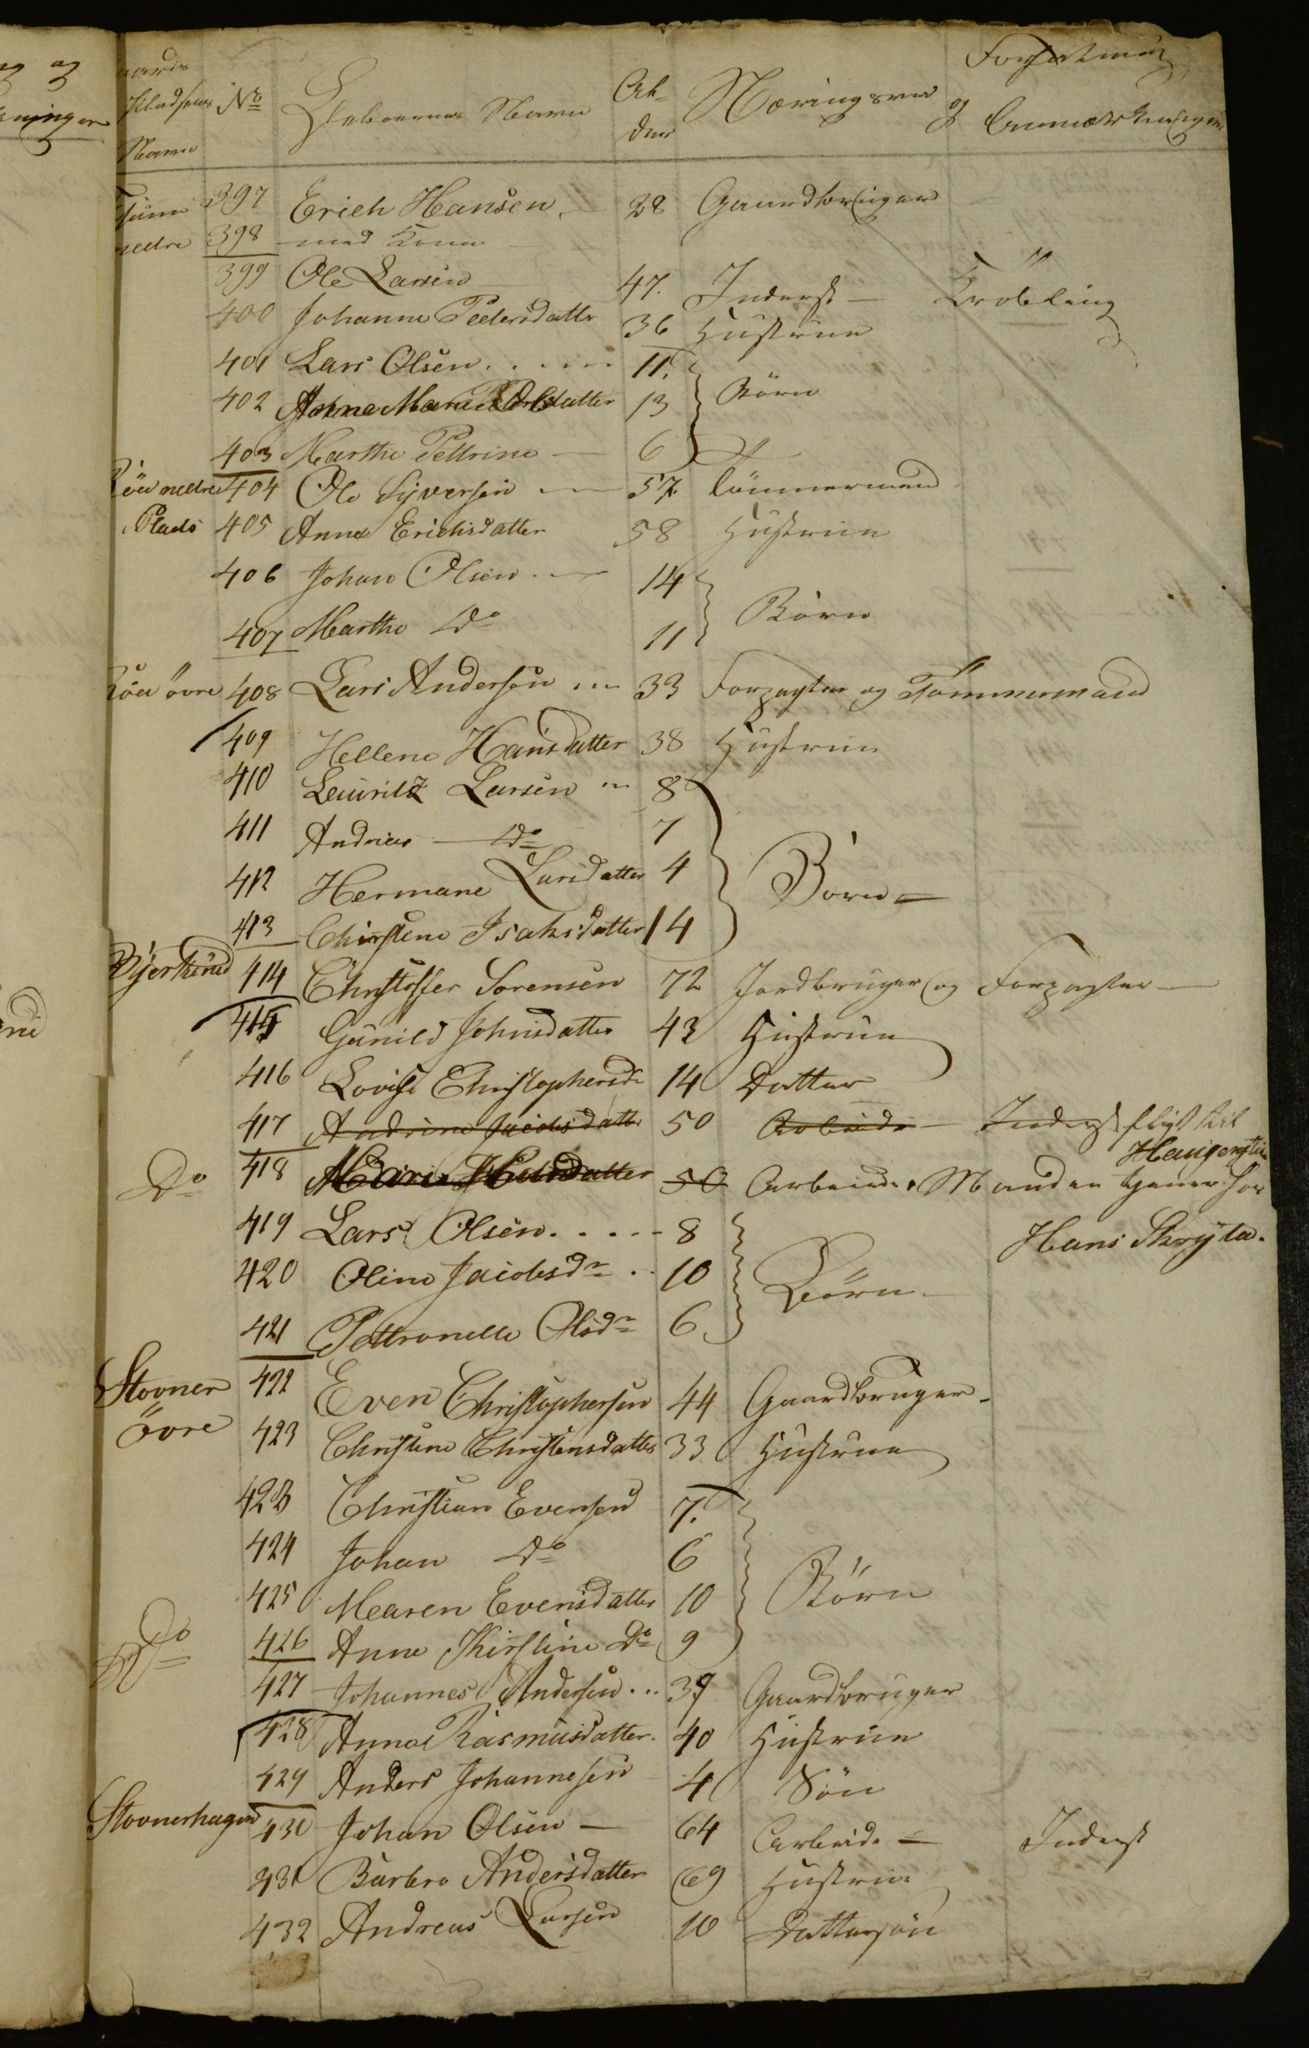 Gaards Pladsens Navn | No | Beboernes Navn | Alder | Næringsvei og Forfatning Anmærkninger
nedre 397 Erich Hansen 28 Gaardbruger
398 med Kone
399 Ole Larsen 47. Inderst — Krøbling
400 Johanne Pedersdatter 36 Hustrue
401 Lars Olsen 11.
402 Anne Marie Olsdatter 13 Børn
403 Marthe Pettrine 6
nedre 404 Ole Syversen 57 Tømmermand
Plads 405 Anne Erichsdatter 58 Hustrue
406 Johan Olsen 14
407 Marthe Do 11 Børn
øvre 408 Lars Andersen 33 Forpagter og Tømmermand
409 Hellene Hansdatter 38 Hustrue
410 Lauritz Larsen 8
411 Andreas Do 7
412 Hermane Larsdatter 4 Børn
413 Christine Isaksdatter 14
414 Christoffer Sorensen 72 Jordbruger og Forpagter
415 Gunild Johnsdatter 43 Hustrue
416 Lovise Christophersdr 14 Datter
417 Andrine Jacobsdatter 50 Arbeide — Inderst flyt til Haugenstuen
Do 418 50 Arbeide. Manden tjener hos
419 Lars Olsen 8 Hans Skøyta.
420 Oline Jacobsdr 10 Børn
421 Pettronelle Olsdr 6
Stovner 422 Even Christophersen 44 Gaardbruger
övre 423 Christine Christensdatter 33 Hustrue
423 Christian Evensen 7.
424 Johan Do 6
425 Maren Evensdatter 10 Børn
426 Anne Kirstine Do 9
Do 427 Johannes Andersen 39 Gaardbruger
428 Anne Rasmusdatter 40 Hustrue
429 Anders Johannesen 4 Søn
Stovnerhagen 430 Johan Olsen — 64 Arbeide — Inderst
431 Barbro Andersdatter 69 Hustrue
432 Andreas Larsen 10 Dattersøn